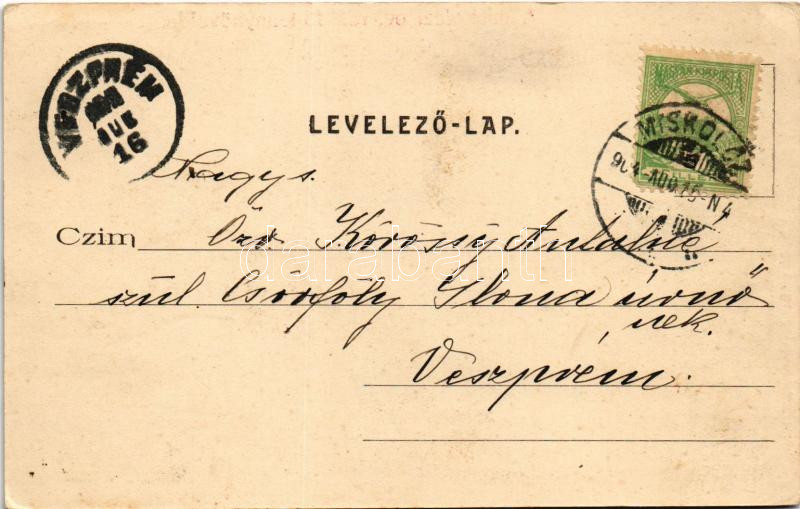 VESZPRÉM
AUG
16
MAGYAR KIR. POSTA
LEVELEZŐ-LAP.
MISKOLCZ
904 AUG. 15 N4
Nagys.
Czim Özv. Kőrössy Antalné
szül. Csórfoly Ilona úrnő
nek.
Veszprém.
darabanth